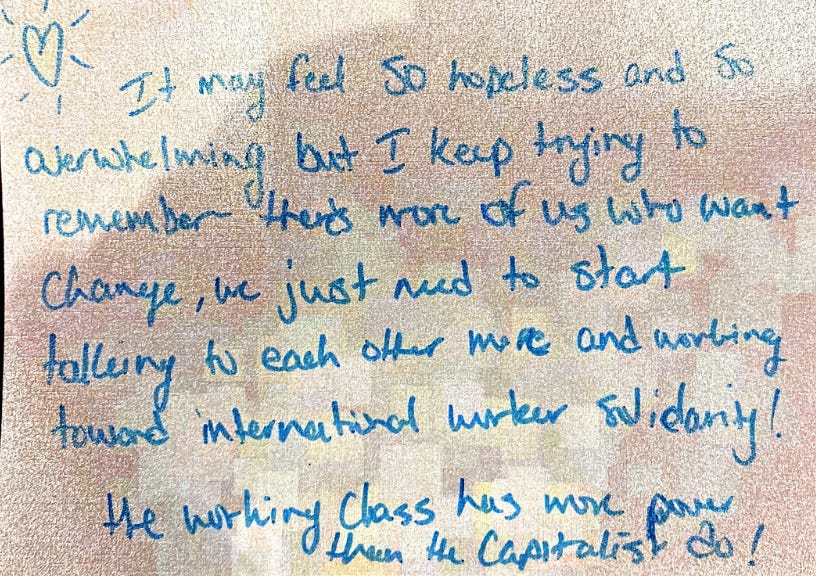 It may feel so hopeless and so
overwhelming but I keep trying to
remember - there's more of us who want
change, we just need to start
talking to each other more and working
toward international worker solidarity!
the working class has more power
than the Capitalist do!